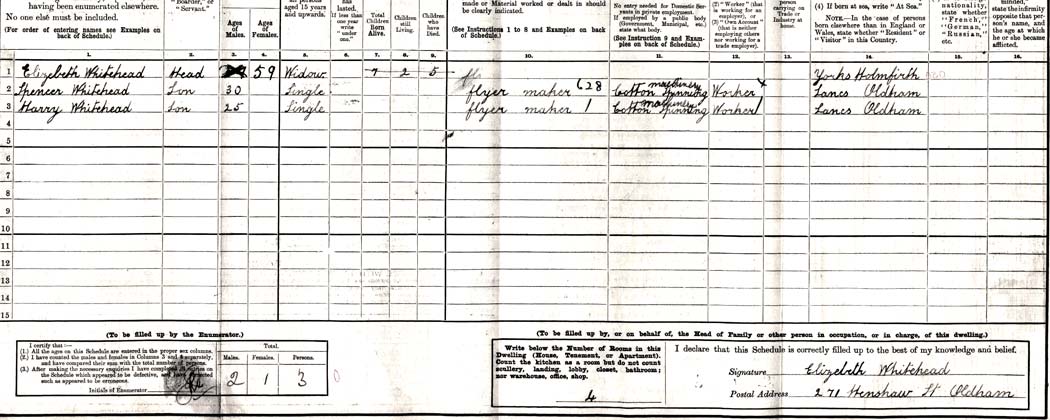 having been enumerated elsewhere.
No one else must be included.
(For order of entering names see Examples on back of Schedule.)
"Boarder," or "Servant."
Ages of Males.
Ages of Females.
aged 15 years and upwards.
has lasted. If less than one year write "under one."
Total Children Born Alive.
Children still Living.
Children who have Died.
made or Material worked or dealt in should be clearly indicated.
(See Instructions 1 to 8 and Examples on back of Schedule.)
No entry needed for Domestic Servants in private employment.
If employed by a public body (Government, Municipal, etc.) state what body.
(See Instruction 9 and Examples on back of Schedule.)
(2) "Worker" (that is working for an employer), or
(3) "Own Account" (that is neither employing others nor working for a trade employer).
person carrying on Trade or Industry at home.
(4) If born at sea, write "At Sea."
NOTE.—In the case of persons born elsewhere than in England or Wales, state whether "Resident" or "Visitor" in this Country.
nationality, state whether "French," "German," "Russian," etc.
minded," state the infirmity opposite that person's name, and the age at which he or she became afflicted.
1. 2. 3. 4. 5. 6. 7. 8. 9. 10. 11. 12. 13. 14. 15. 16.
1 Elizebeth Whitehead Head 59 Widow 7 2 5 Yorks Holmfirth
2 Spencer Whitehead Son 30 Single flyer maker 628 Cotton Spinning machinery Worker Lancs Oldham
3 Harry Whitehead Son 25 Single flyer maker Cotton Spinning machinery Worker Lancs Oldham
4
5
6
7
8
9
10
11
12
13
14
15
(To be filled up by the Enumerator.)
I certify that:—
(1.) All the ages on this Schedule are entered in the proper sex columns.
(2.) I have counted the males and females in Columns 3 and 4 separately, and have compared their sum with the total number of persons.
(3.) After making the necessary enquiries I have completed all entries on the Schedule which appeared to be defective, and have corrected such as appeared to be erroneous.
Initials of Enumerator
Total.
Males. Females. Persons.
2 1 3
(To be filled up by, or on behalf of, the Head of Family or other person in occupation, or in charge, of this dwelling.)
Write below the Number of Rooms in this Dwelling (House, Tenement, or Apartment). Count the kitchen as a room but do not count scullery, landing, lobby, closet, bathroom; nor warehouse, office, shop.
4
I declare that this Schedule is correctly filled up to the best of my knowledge and belief.
Signature Elizebeth Whitehead
Postal Address 271 Henshaw St Oldham